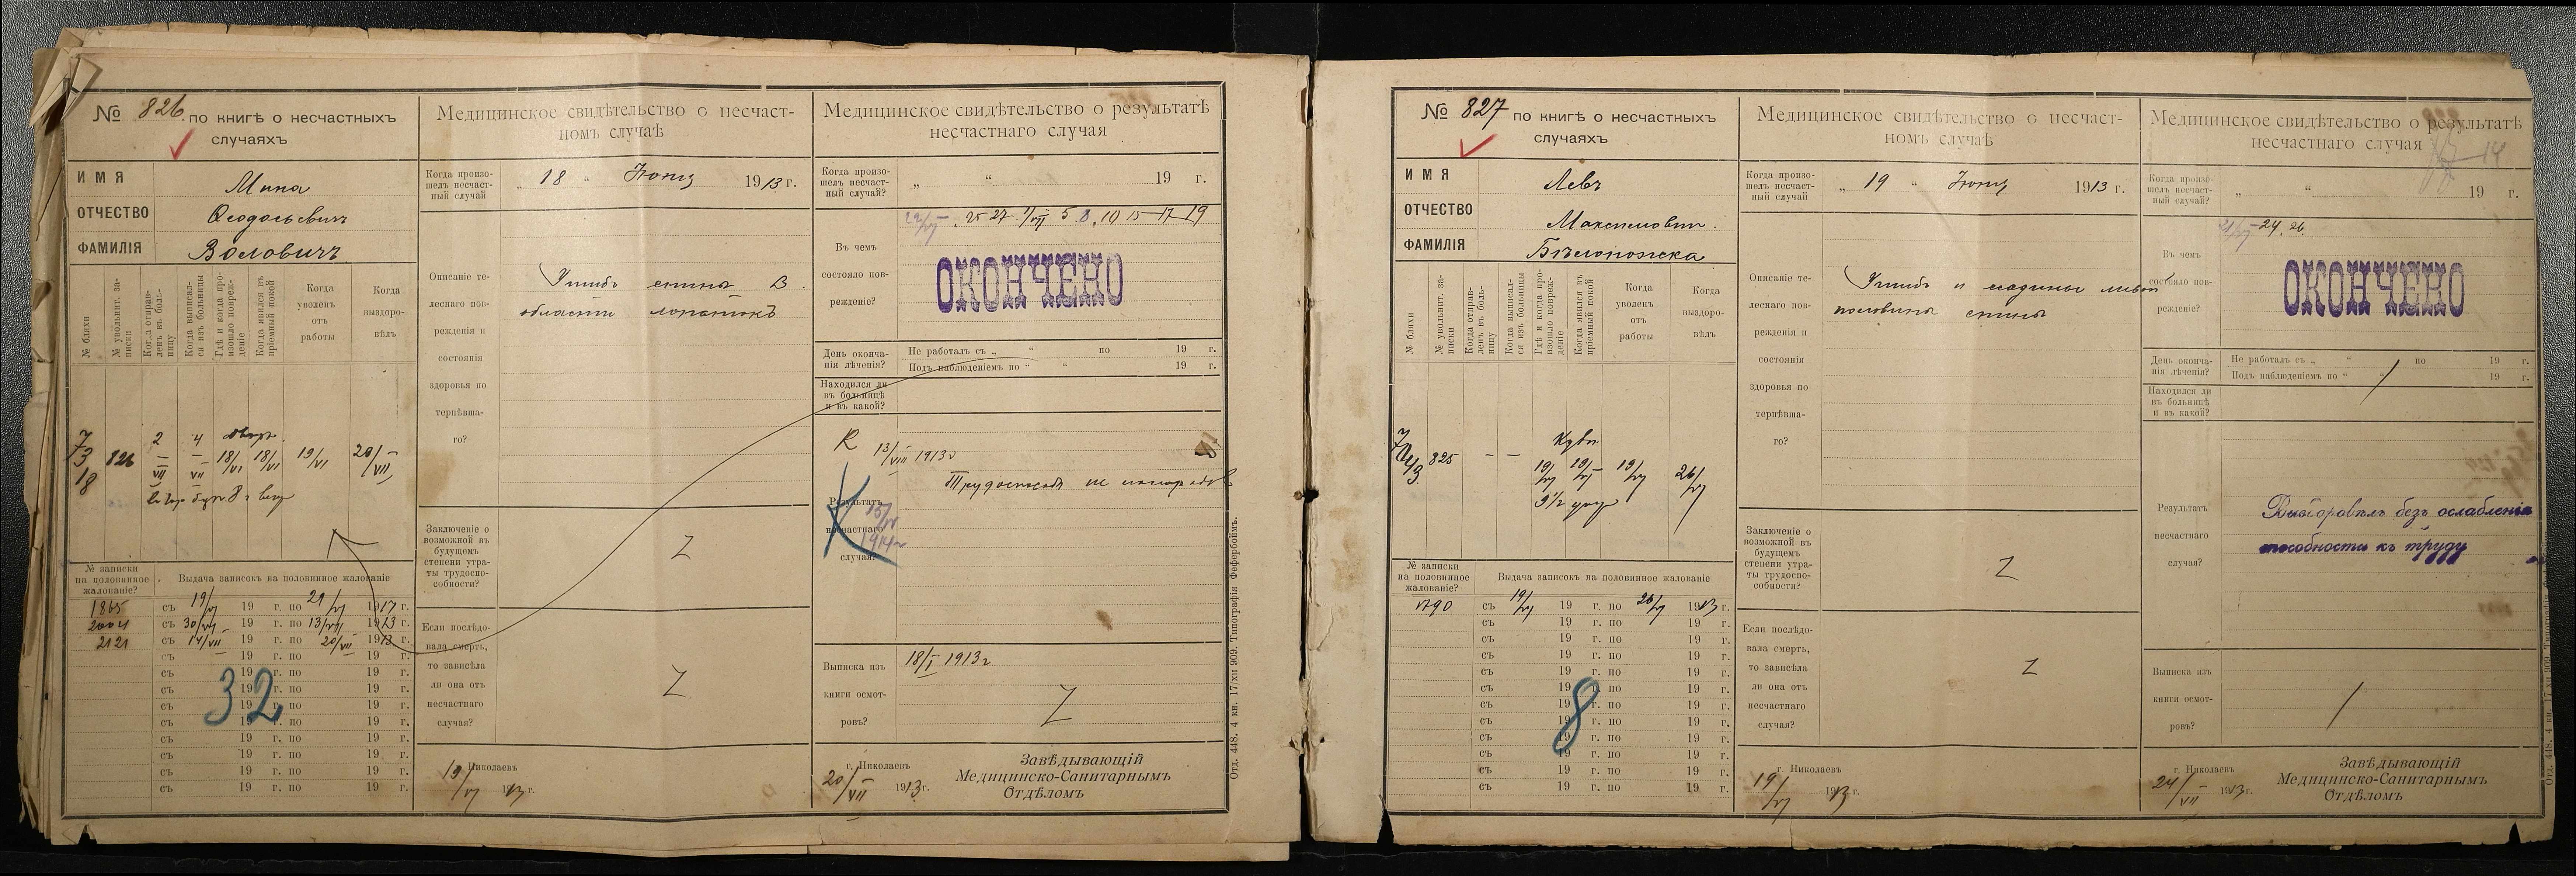 № 826 по книгѣ о несчастныхъ
случаяхъ
ИМЯ Мина
ОТЧЕСТВО Ѳеодосьевичъ
ФАМИЛІЯ Воловичъ
№ бляхи
№ увольнит. записки
Когда отправленъ въ больницу
Когда выписался изъ больницы
Гдѣ и когда произошло поврежденіе
Когда явился въ пріемный покой
Когда уволенъ отъ работы
Когда выздоровѣлъ
73/18 826 2/VII 4/VII 18/VI 18/VI 19/VI 20/VII
№ записки на половинное жалованіе?
Выдача записокъ на половинное жалованіе
1865 съ 19/VI 19 г. по 29/VI 1917 г.
2004 съ 30/VI 19 г. по 13/VII 1913 г.
2121 съ 14/VII 19 г. по 20/VII 1913 г.
съ 19 г. по 19 г.
съ 19 г. по 19 г.
съ 19 г. по 19 г.
съ 19 г. по 19 г.
съ 19 г. по 19 г.
съ 19 г. по 19 г.
съ 19 г. по 19 г.
съ 19 г. по 19 г.
съ 19 г. по 19 г.
32
Медицинское свидѣтельство о несчаст-
номъ случаѣ
Когда произо-
шелъ несчаст-
ный случай
„ 18 “ Іюня 1913 г.
Описаніе те-
леснаго пов-
режденія и
состоянія
здоровья по
терпѣвша-
го?
Ушибъ спины в
области лопатокъ
Заключеніе о
возможной въ
будущемъ
степени утра-
ты трудоспо-
собности?
Z
Если послѣдо-
вала смерть,
то зависѣла
ли она отъ
несчастнаго
случая?
Z
г. Николаевъ
19/VI 1913 г.
Медицинское свидѣтельство о результатѣ
несчастнаго случая
Когда произо-
шелъ несчаст-
ный случай?
„ “ 19 г.
25 27 1/VII 5 8 10 15 17 19
Въ чемъ
состояло пов-
режденіе?
ОКОНЧЕНО
День оконча-
нія лѣченія?
Не работалъ съ „ “ по 19 г.
Подъ наблюденіемъ по “ “ 19 г.
Находился ли
въ больницѣ
и въ какой?
R 13/VIII 1913 г
Результатъ
несчастнаго
случая?
К
1914 г
Выписка изъ
книги осмот-
ровъ?
18/I 1913 г
Z
г. Николаевъ
20/VII 1913 г.
Завѣдывающій
Медицинско-Санитарнымъ
Отдѣломъ
Отд. 448. 4 кн. 17/XII 909. Типографія Фефербоймъ.
№ 827 по книгѣ о несчастныхъ
случаяхъ
ИМЯ Левъ
ОТЧЕСТВО Максимович.
ФАМИЛІЯ Бѣлоножка
№ бляхи
№ увольнит. записки
Когда отправленъ въ больницу
Когда выписался изъ больницы
Гдѣ и когда произошло поврежденіе
Когда явился въ пріемный покой
Когда уволенъ отъ работы
Когда выздоровѣлъ
825 – – 19/VI 19/VI 19/VI 26/VI
9½
№ записки на половинное жалованіе?
Выдача записокъ на половинное жалованіе
1790 съ 19/VI 19 г. по 26/VI 1913 г.
съ 19 г. по 19 г.
съ 19 г. по 19 г.
съ 19 г. по 19 г.
съ 19 г. по 19 г.
съ 19 г. по 19 г.
съ 19 г. по 19 г.
съ 19 г. по 19 г.
съ 19 г. по 19 г.
съ 19 г. по 19 г.
съ 19 г. по 19 г.
съ 19 г. по 19 г.
8
Медицинское свидѣтельство о несчаст-
номъ случаѣ
Когда произо-
шелъ несчаст-
ный случай
„ 19 “ Іюня 1913 г.
Описаніе те-
леснаго пов-
режденія и
состоянія
здоровья по
терпѣвша-
го?
Ушибъ и ссадины левой
половины спины
Заключеніе о
возможной въ
будущемъ
степени утра-
ты трудоспо-
собности?
Z
Если послѣдо-
вала смерть,
то зависѣла
ли она отъ
несчастнаго
случая?
Z
г. Николаевъ
19/VI 1913 г.
Медицинское свидѣтельство о результатѣ
несчастнаго случая
Когда произо-
шелъ несчаст-
ный случай?
„ “ 19 г.
24. 26.
Въ чемъ
состояло пов-
режденіе?
ОКОНЧЕНО
День оконча-
нія лѣченія?
Не работалъ съ „ “ по 19 г.
Подъ наблюденіемъ по “ “ 19 г.
Находился ли
въ больницѣ
и въ какой?
Результатъ
несчастнаго
случая?
Выздоровѣлъ безъ ослабленія
способности къ труду
Выписка изъ
книги осмот-
ровъ?
г. Николаевъ
24/VII 1913 г.
Завѣдывающій
Медицинско-Санитарнымъ
Отдѣломъ
Отд. 448. 4 кн. 17/XII 909. Типографія Фефербоймъ.